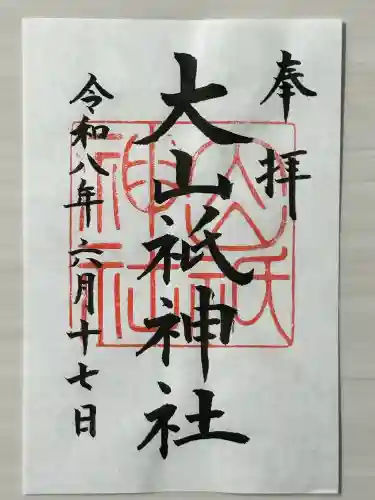 奉拝
大山祇神社
令和八年六月十七日